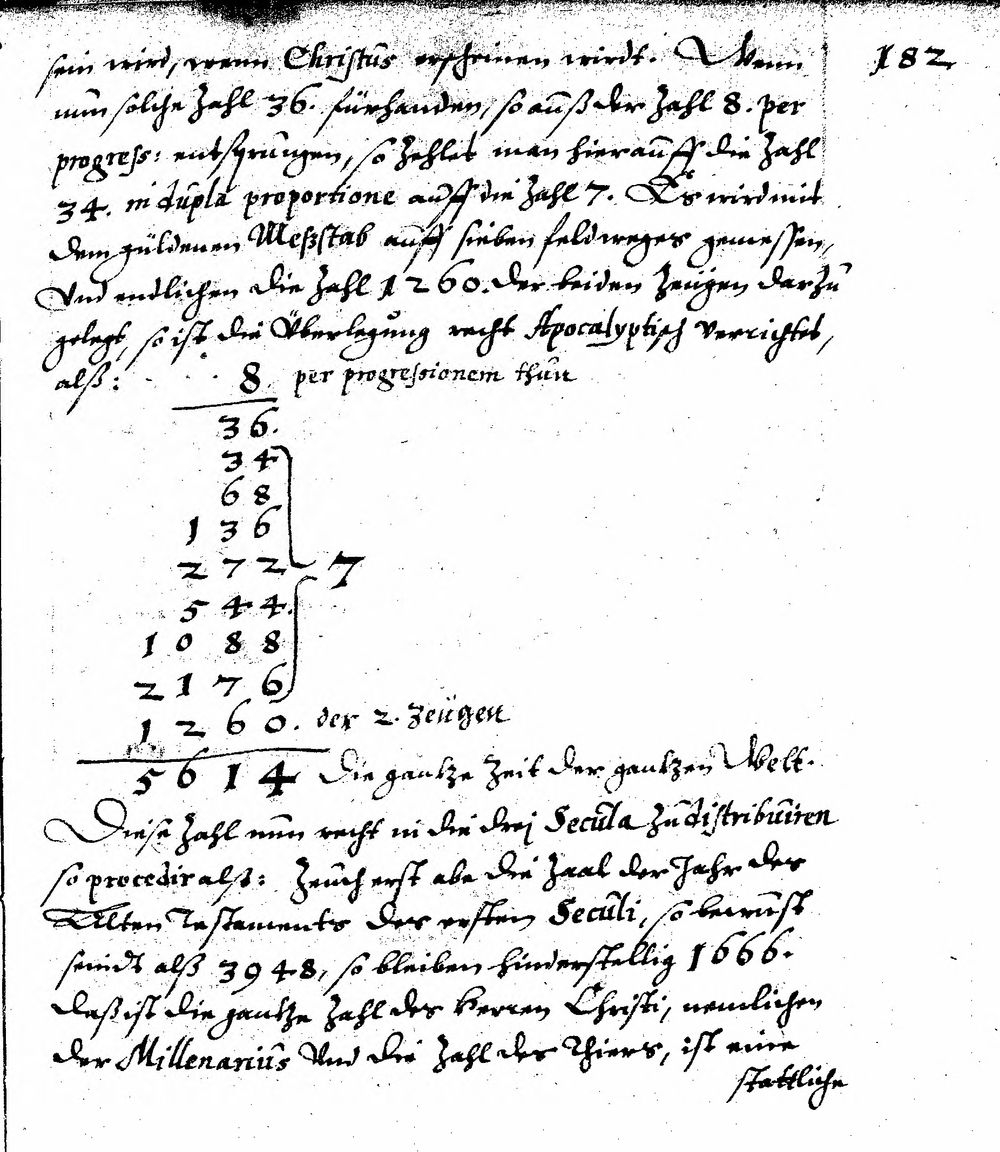 sein wird, wenn Christus erscheinen wirdt. Wenn 182
nun solche Zahl 36. fürhanden, so auß der Zahl 8. per
progress: entsprungen, so zehlet man hierauff die Zahl
34. in dupla proportione auff die Zahl 7. Es wird mit
dem güldenen Meßstab auff sieben feldweges gemessen,
Und endlichen die Zahl 1260. der beiden Zeügen darzu
gelegt, so ist die Überlegung recht Apocalyptisch verrichtet,
alß: 8. per progressionem thun
36.
34
68
136
272 7
544.
1088
2176
1260. der 2. Zeügen
5614 Die gantze Zeit der gantzen Welt.
Diese Zahl nun recht in die drej Secula zu distribuiren
so procedir alß: Zeuch erst abe die Zaal der Jahr des
Alten Testaments des ersten Seculi, so bewust
seindt alß 3948, so bleiben hinderstellig 1666.
daß ist die gantze Zahl des Herren Christi, nemlichen
der Millenarius Und die Zahl des Thiers, ist eine
stattliche